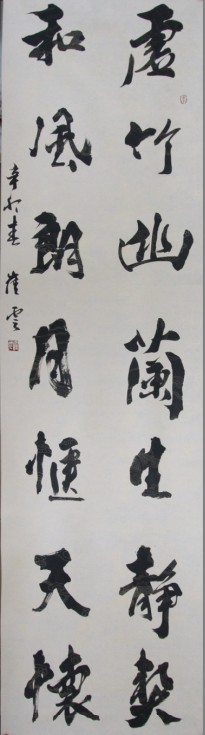 虛竹幽蘭生靜契
和風朗月愜天懷
辛卯春 崔雲